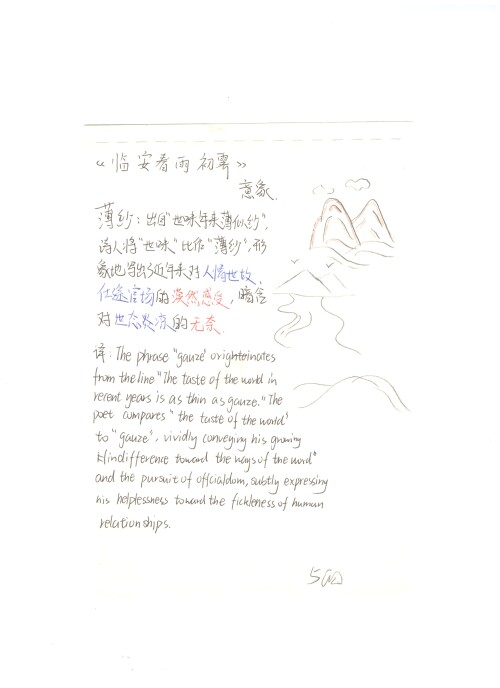 《临安春雨初霁》
意象.
薄纱：出自"世味年来薄似纱",
诗人将"世味"比作"薄纱",形
象地写出了近年来对人情世故,
仕途官场的淡然感受,暗含
对世态炎凉的无奈.
译: The phrase "gauze" orighteinates
from the line "The taste of the world in
recent years is as thin as gauze." The
poet compares "the taste of the world"
to "gauze", vividly conveying his growing
indifference toward the ways of the world"
and the pursuit of officialdom, subtly expressing
his helplessness toward the fickleness of human
relationships.